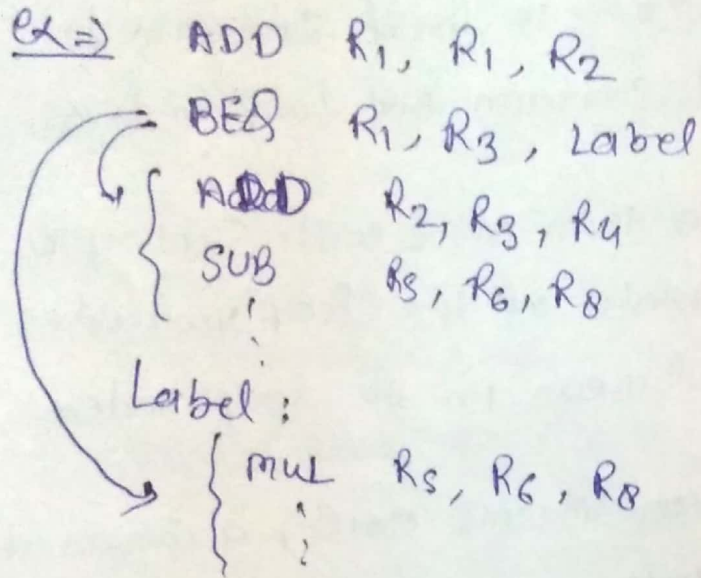 ex => ADD R1, R1, R2
BEQ R1, R3, Label
ADD R2, R3, R4
SUB R5, R6, R8
Label :
MUL R5, R6, R8